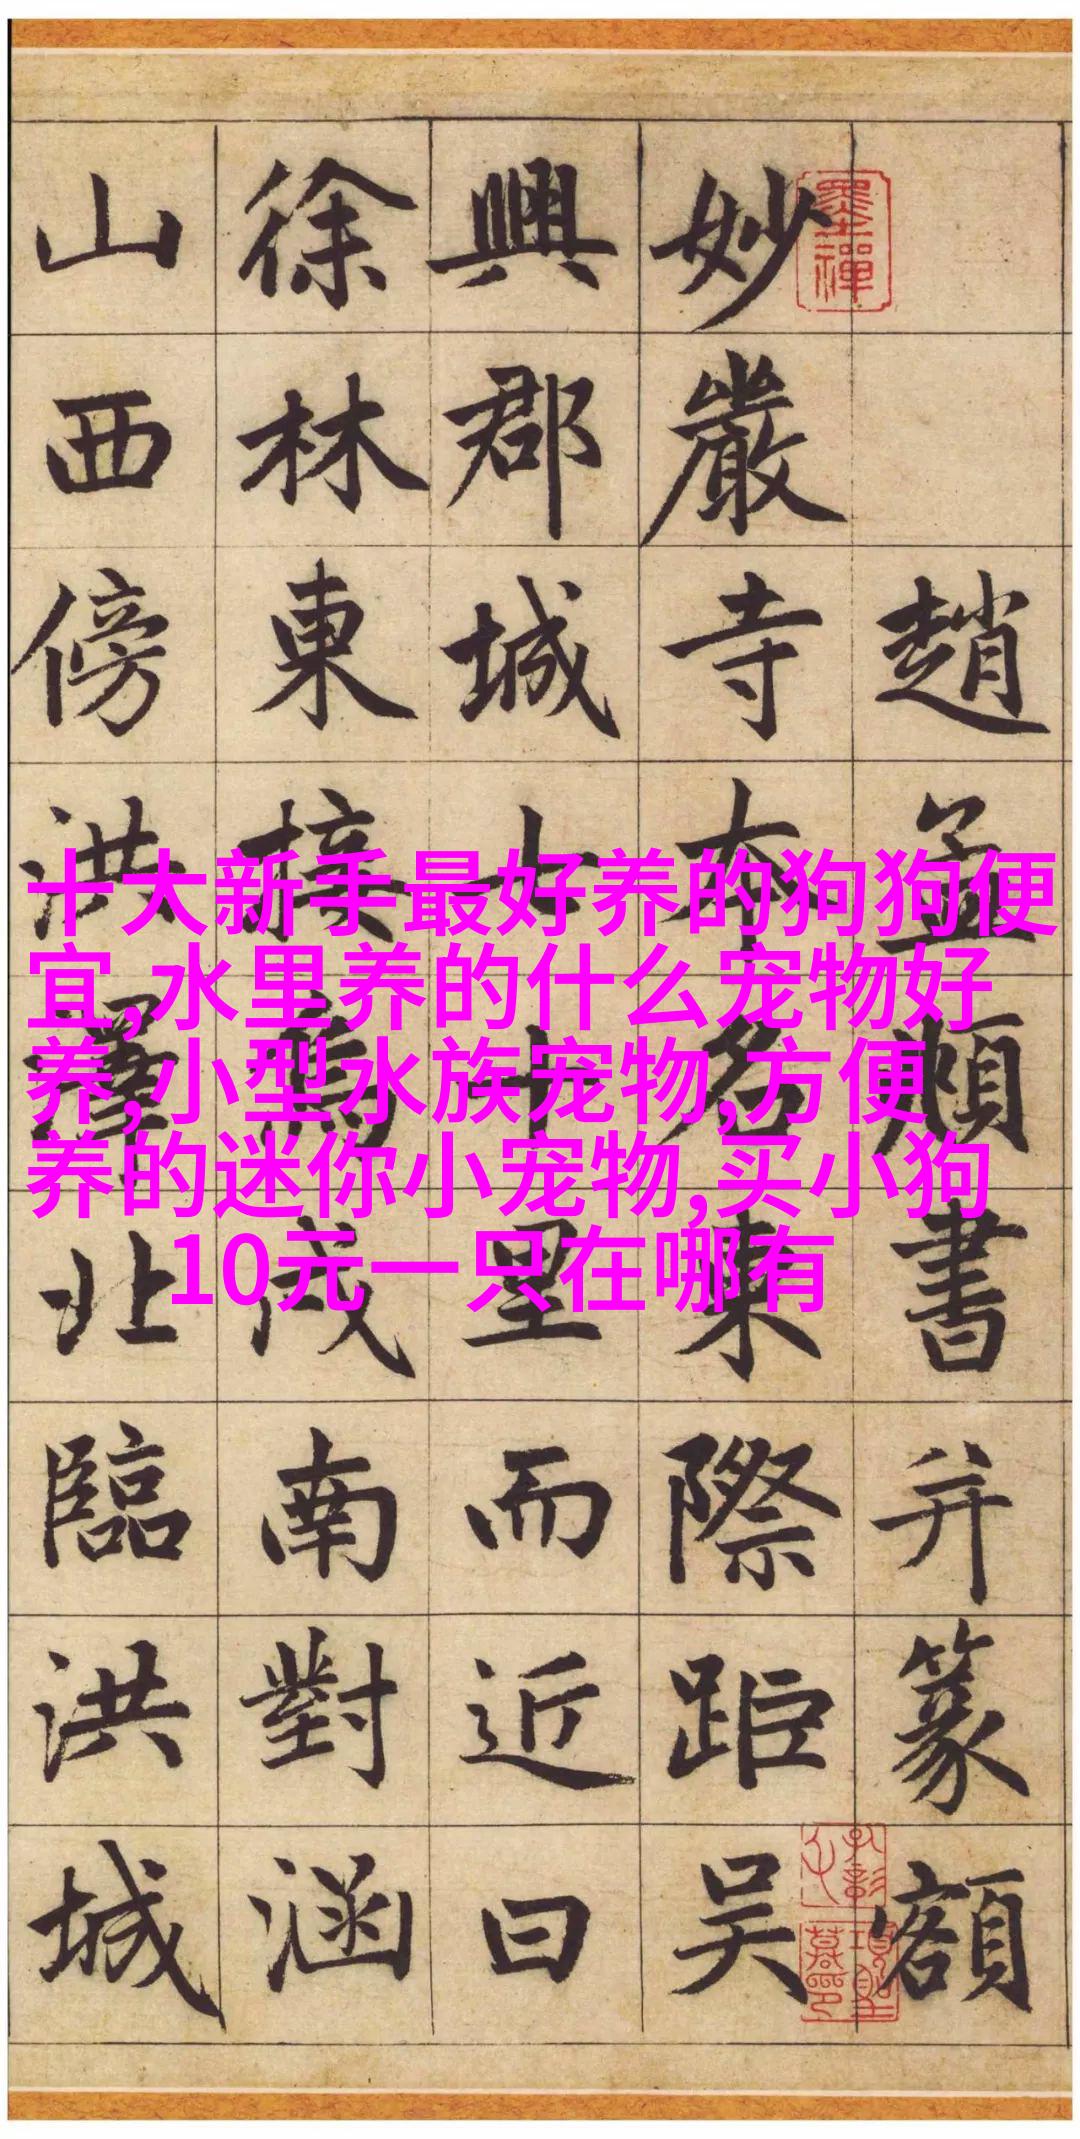 趙孟頫書并篆額
妙嚴寺本名東際距吳
興郡城七十里而近曰
徐林東接烏戍南對涵
山西傍洪澤北臨洪城
墨禪
十大新手最好养的狗狗便
宜,水里养的什么宠物好
养,小型水族宠物,方便
养的迷你小宠物,买小狗
10元一只在哪有